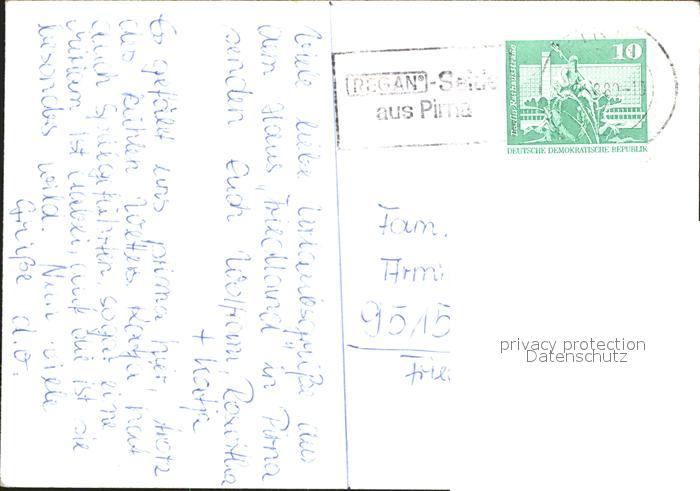 Viele liebe Urlaubsgrüße aus
dem Haus „Friedland" in Pirna
senden Euch Wolfram, Dorothea
+ Katja
Es gefällt uns prima hier, trotz
des kühlen Wetters. Katja hat
auch Spielgefährten, sogar eine
ist dabei, auf die ist sie
besonders wild. Nun viele
Grüße d. O.
REGAN®-Seide
aus Pirna
10
Berlin, Rathausstraße
DEUTSCHE DEMOKRATISCHE REPUBLIK
Fam.
Armi
9515
Frie
privacy protection
Datenschutz